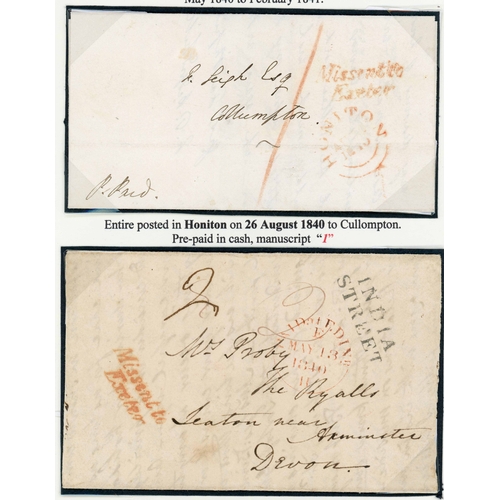 May 1840 to February 1841.
Missent to
Exeter
J. Leigh Esq
Collumpton.
HONITON
P. Paid.
Entire posted in Honiton on 26 August 1840 to Cullompton.
Pre-paid in cash, manuscript "1"
2
INDIA
STREET
MAY 13
1840
Missent to
Exeter
Mrs Proby
The Ryalls
Seaton near
Axminster
Devon.